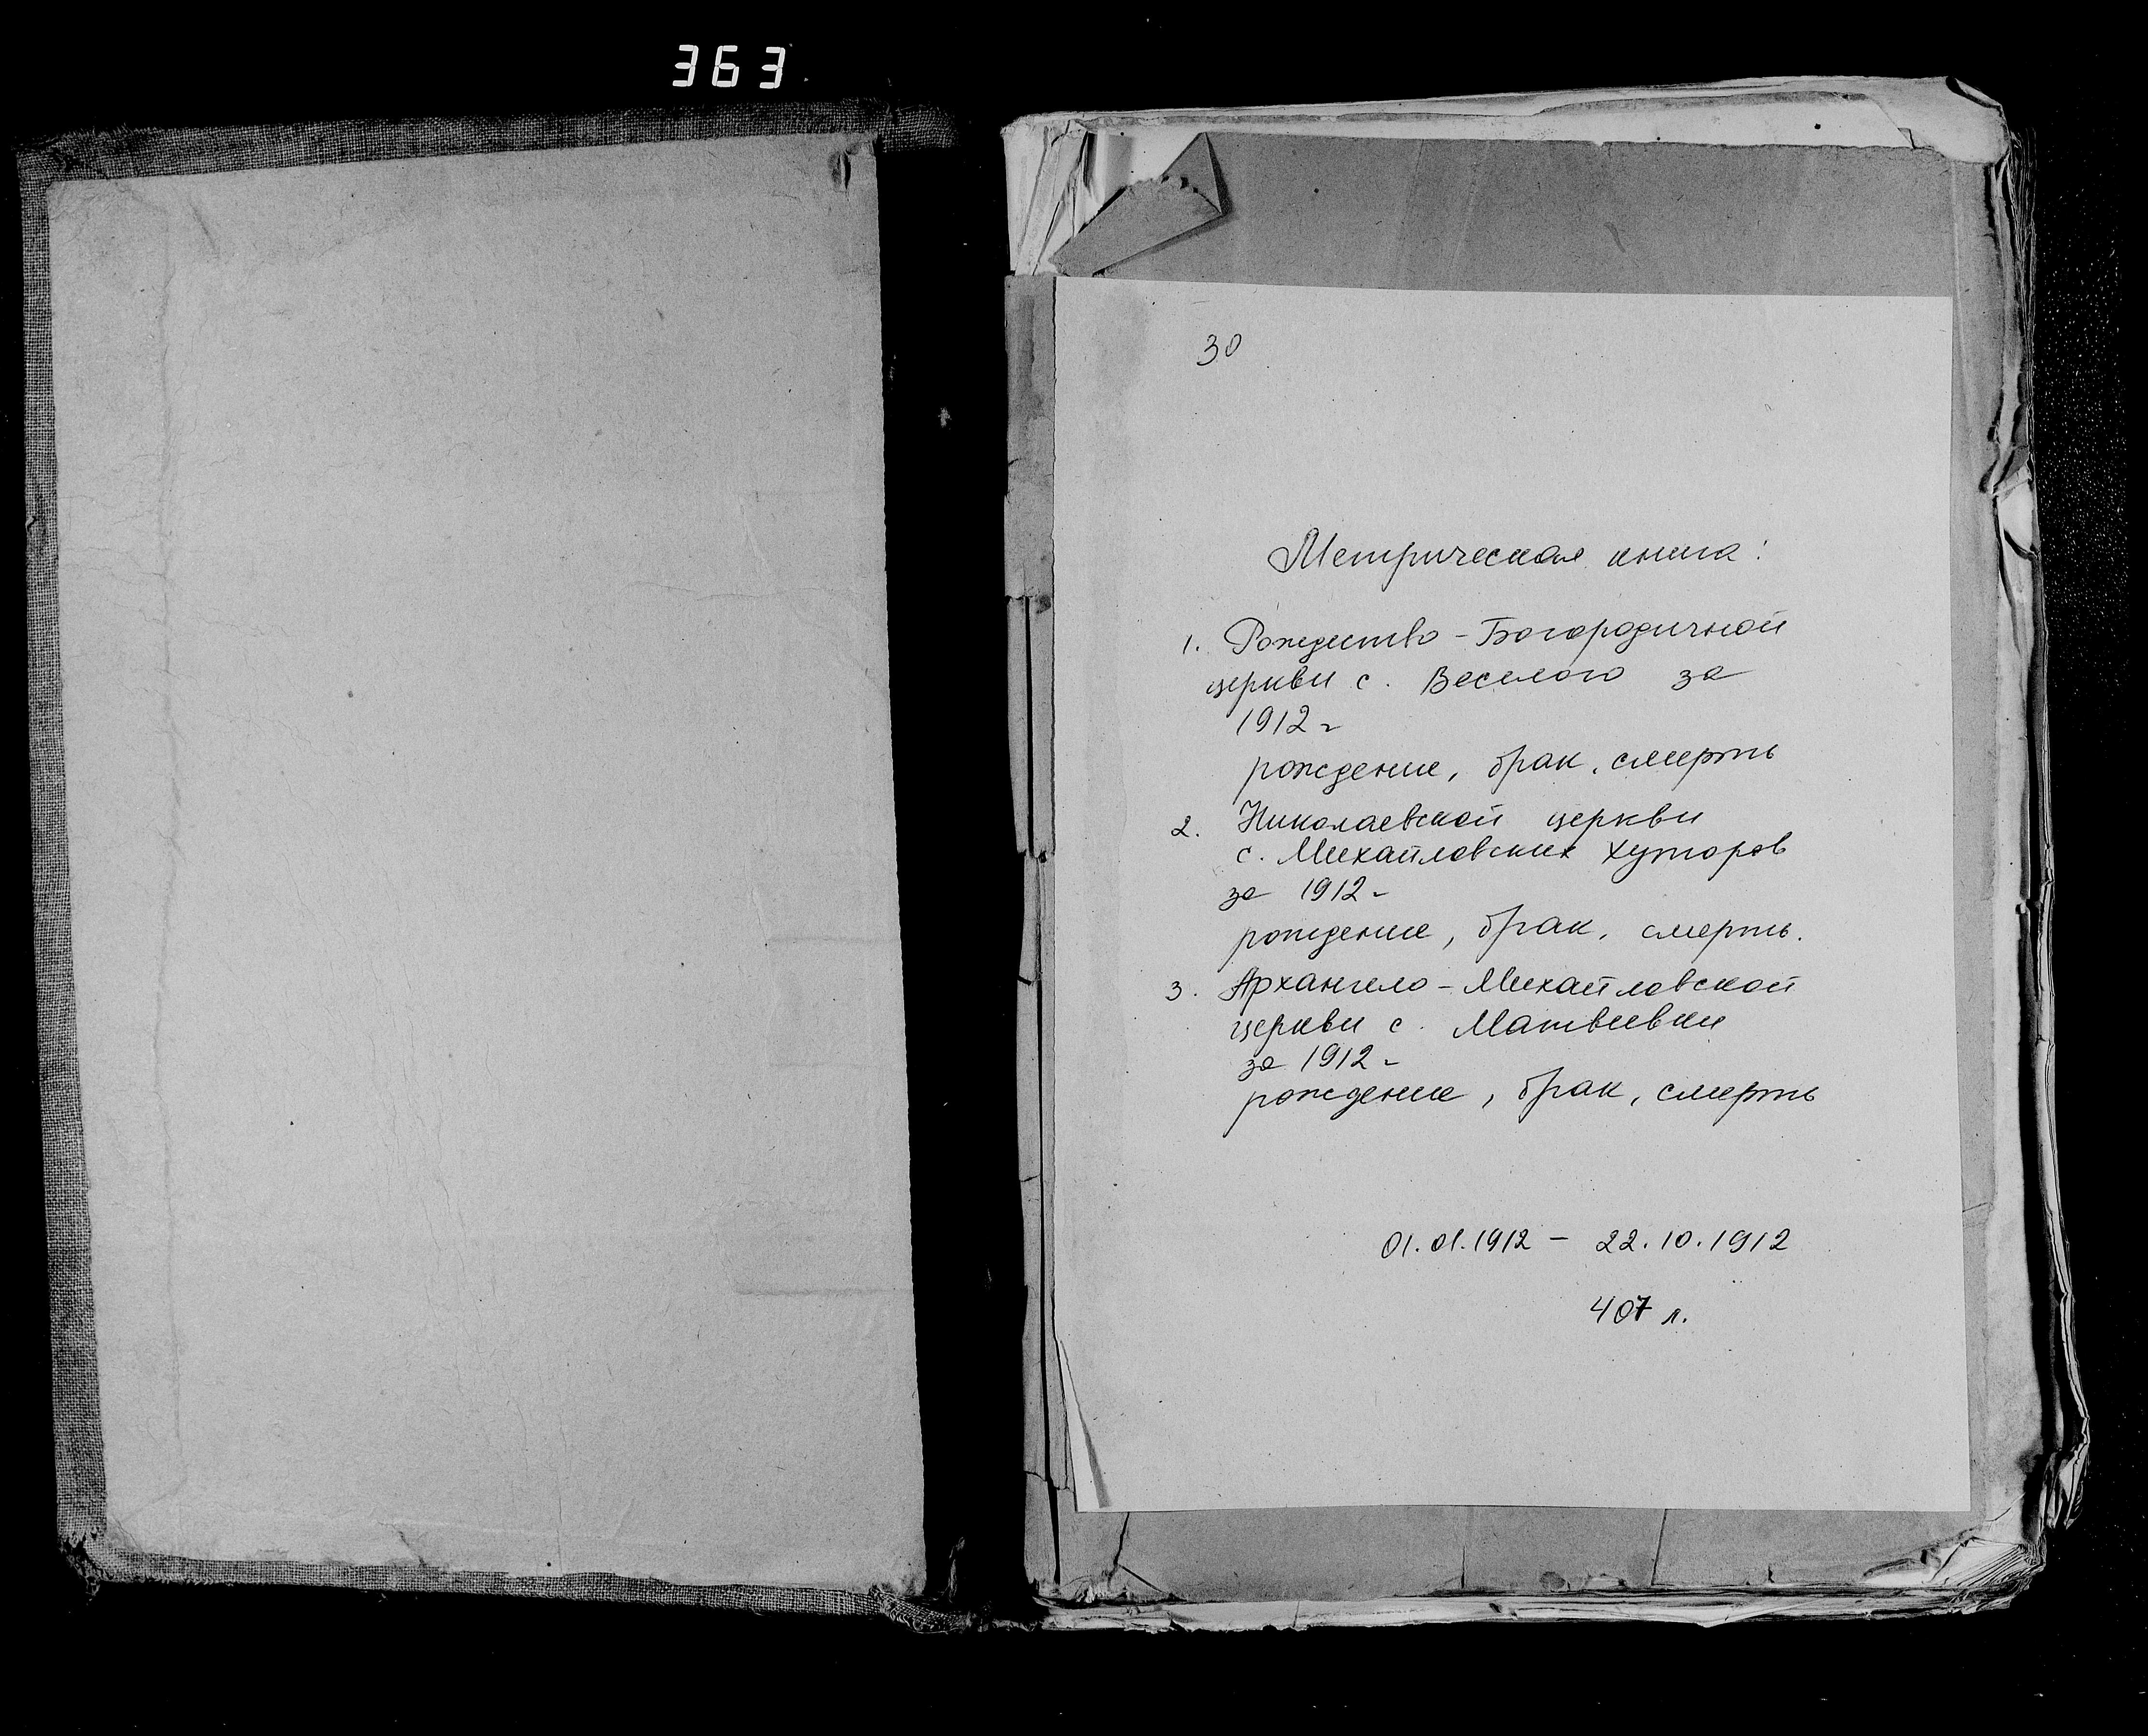 363
30
Метрическая книга:
1. Рождество-Богородичной
церкви с. Веселого за
1912 г
рождение, брак, смерть
2. Николаевской церкви
с. Михайловских хуторов
за 1912 г
рождение, брак, смерть.
3. Архангело-Михайловской
церкви с. Матвеевки
за 1912 г
рождение, брак, смерть
01.01.1912 - 22.10.1912
407 л.